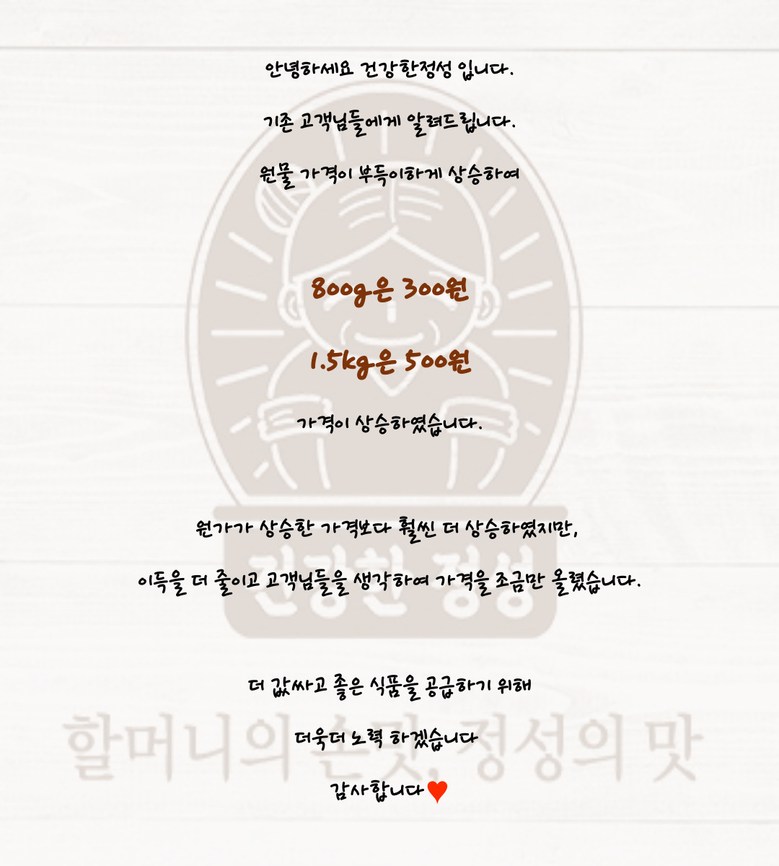 안녕하세요 건강한정성 입니다.
기존 고객님들에게 알려드립니다.
원물 가격이 부득이하게 상승하여
800g은 300원
1.5kg은 500원
가격이 상승하였습니다.
원가가 상승한 가격보다 훨씬 더 상승하였지만,
이득을 더 줄이고 고객님들을 생각하여 가격을 조금만 올렸습니다.
건강한 정성
더 값싸고 좋은 식품을 공급하기 위해
더욱더 노력 하겠습니다
할머니의 손맛, 정성의 맛
감사합니다♥